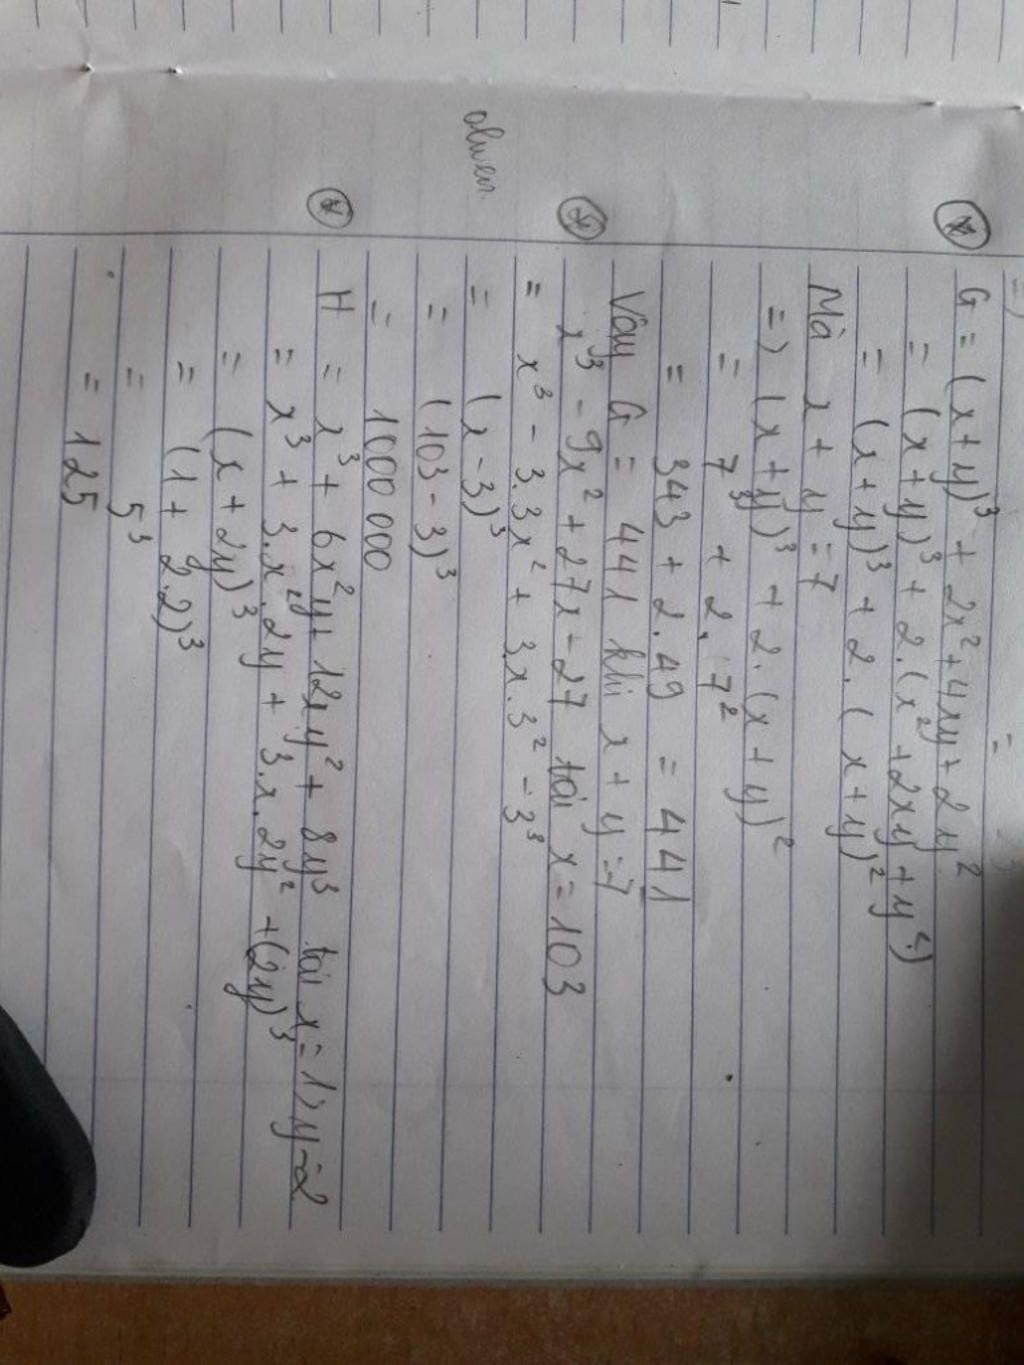 G = (x+y)³ + 2x² + 4xy + 2y²
= (x+y)³ + 2.(x² + 2xy + y²)
= (x+y)³ + 2.(x+y)²
Mà x + y = 7
=) (x+y)³ + 2.(x+y)²
= 7³ + 2.7²
= 343 + 2.49 = 441
Vậy G = 441 khi x + y = 7
x³ - 9x² + 27x - 27 tại x = 103
= x³ - 3.3x² + 3.x.3² - 3³
= (x-3)³
= (103-3)³
= 1000 000
H = x³ + 6x²y + 12xy² + 8y³ tại x = 1, y = 2
= x³ + 3.x².2y + 3.x.2y² + (2y)³
= (x + 2y)³
= (1 + 2.2)³
= 5³
= 125